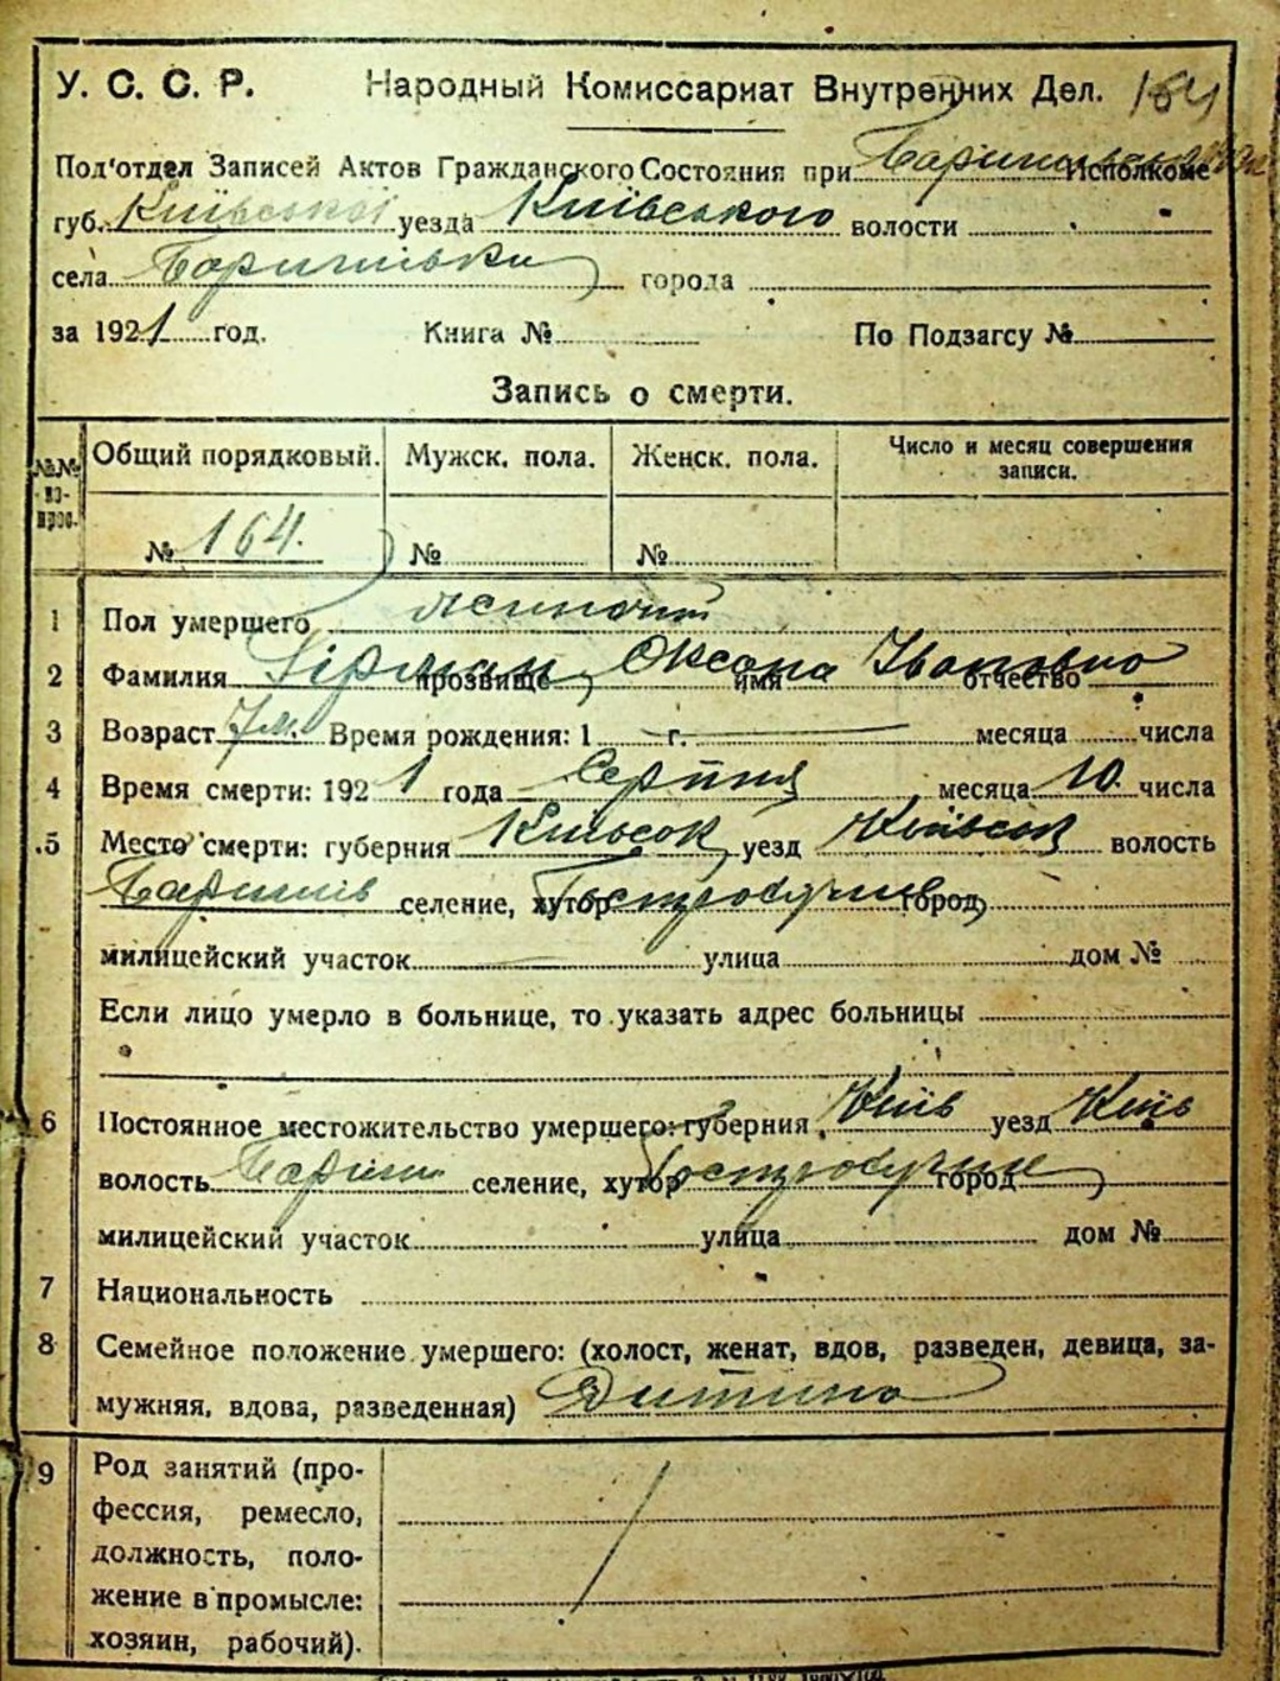 У. С. С. Р. Народный Комиссариат Внутренних Дел. 164
Под'отдел Записей Актов Гражданского Состояния при Исполкоме
губ. Київської уезда Київського волости
села Баришівки города
за 1921 год. Книга № По Подзагсу №
Запись о смерти.
№№ по- прос. Общий порядковый. Мужск. пола. Женск. пола. Число и месяц совершения записи.
№ 164. № №
1 Пол умершего жіночий
2 Фамилия прозвище Оксана имя Івановна отчество
3 Возраст 7 м. Время рождения: 1 г. месяца числа
4 Время смерти: 1921 года Серпня месяца 10 числа
5 Место смерти: губерния уезд волость
Баришів селение, хутор город
милицейский участок улица дом №
Если лицо умерло в больнице, то указать адрес больницы
6 Постоянное местожительство умершего: губерния Київ уезд Київ
волость Бариш селение, хутор город
милицейский участок улица дом №
7 Национальность
8 Семейное положение умершего: (холост, женат, вдов, разведен, девица, за-
мужняя, вдова, разведенная) Дитина
9 Род занятий (про-
фессия, ремесло,
должность, поло-
жение в промысле:
хозяин, рабочий).